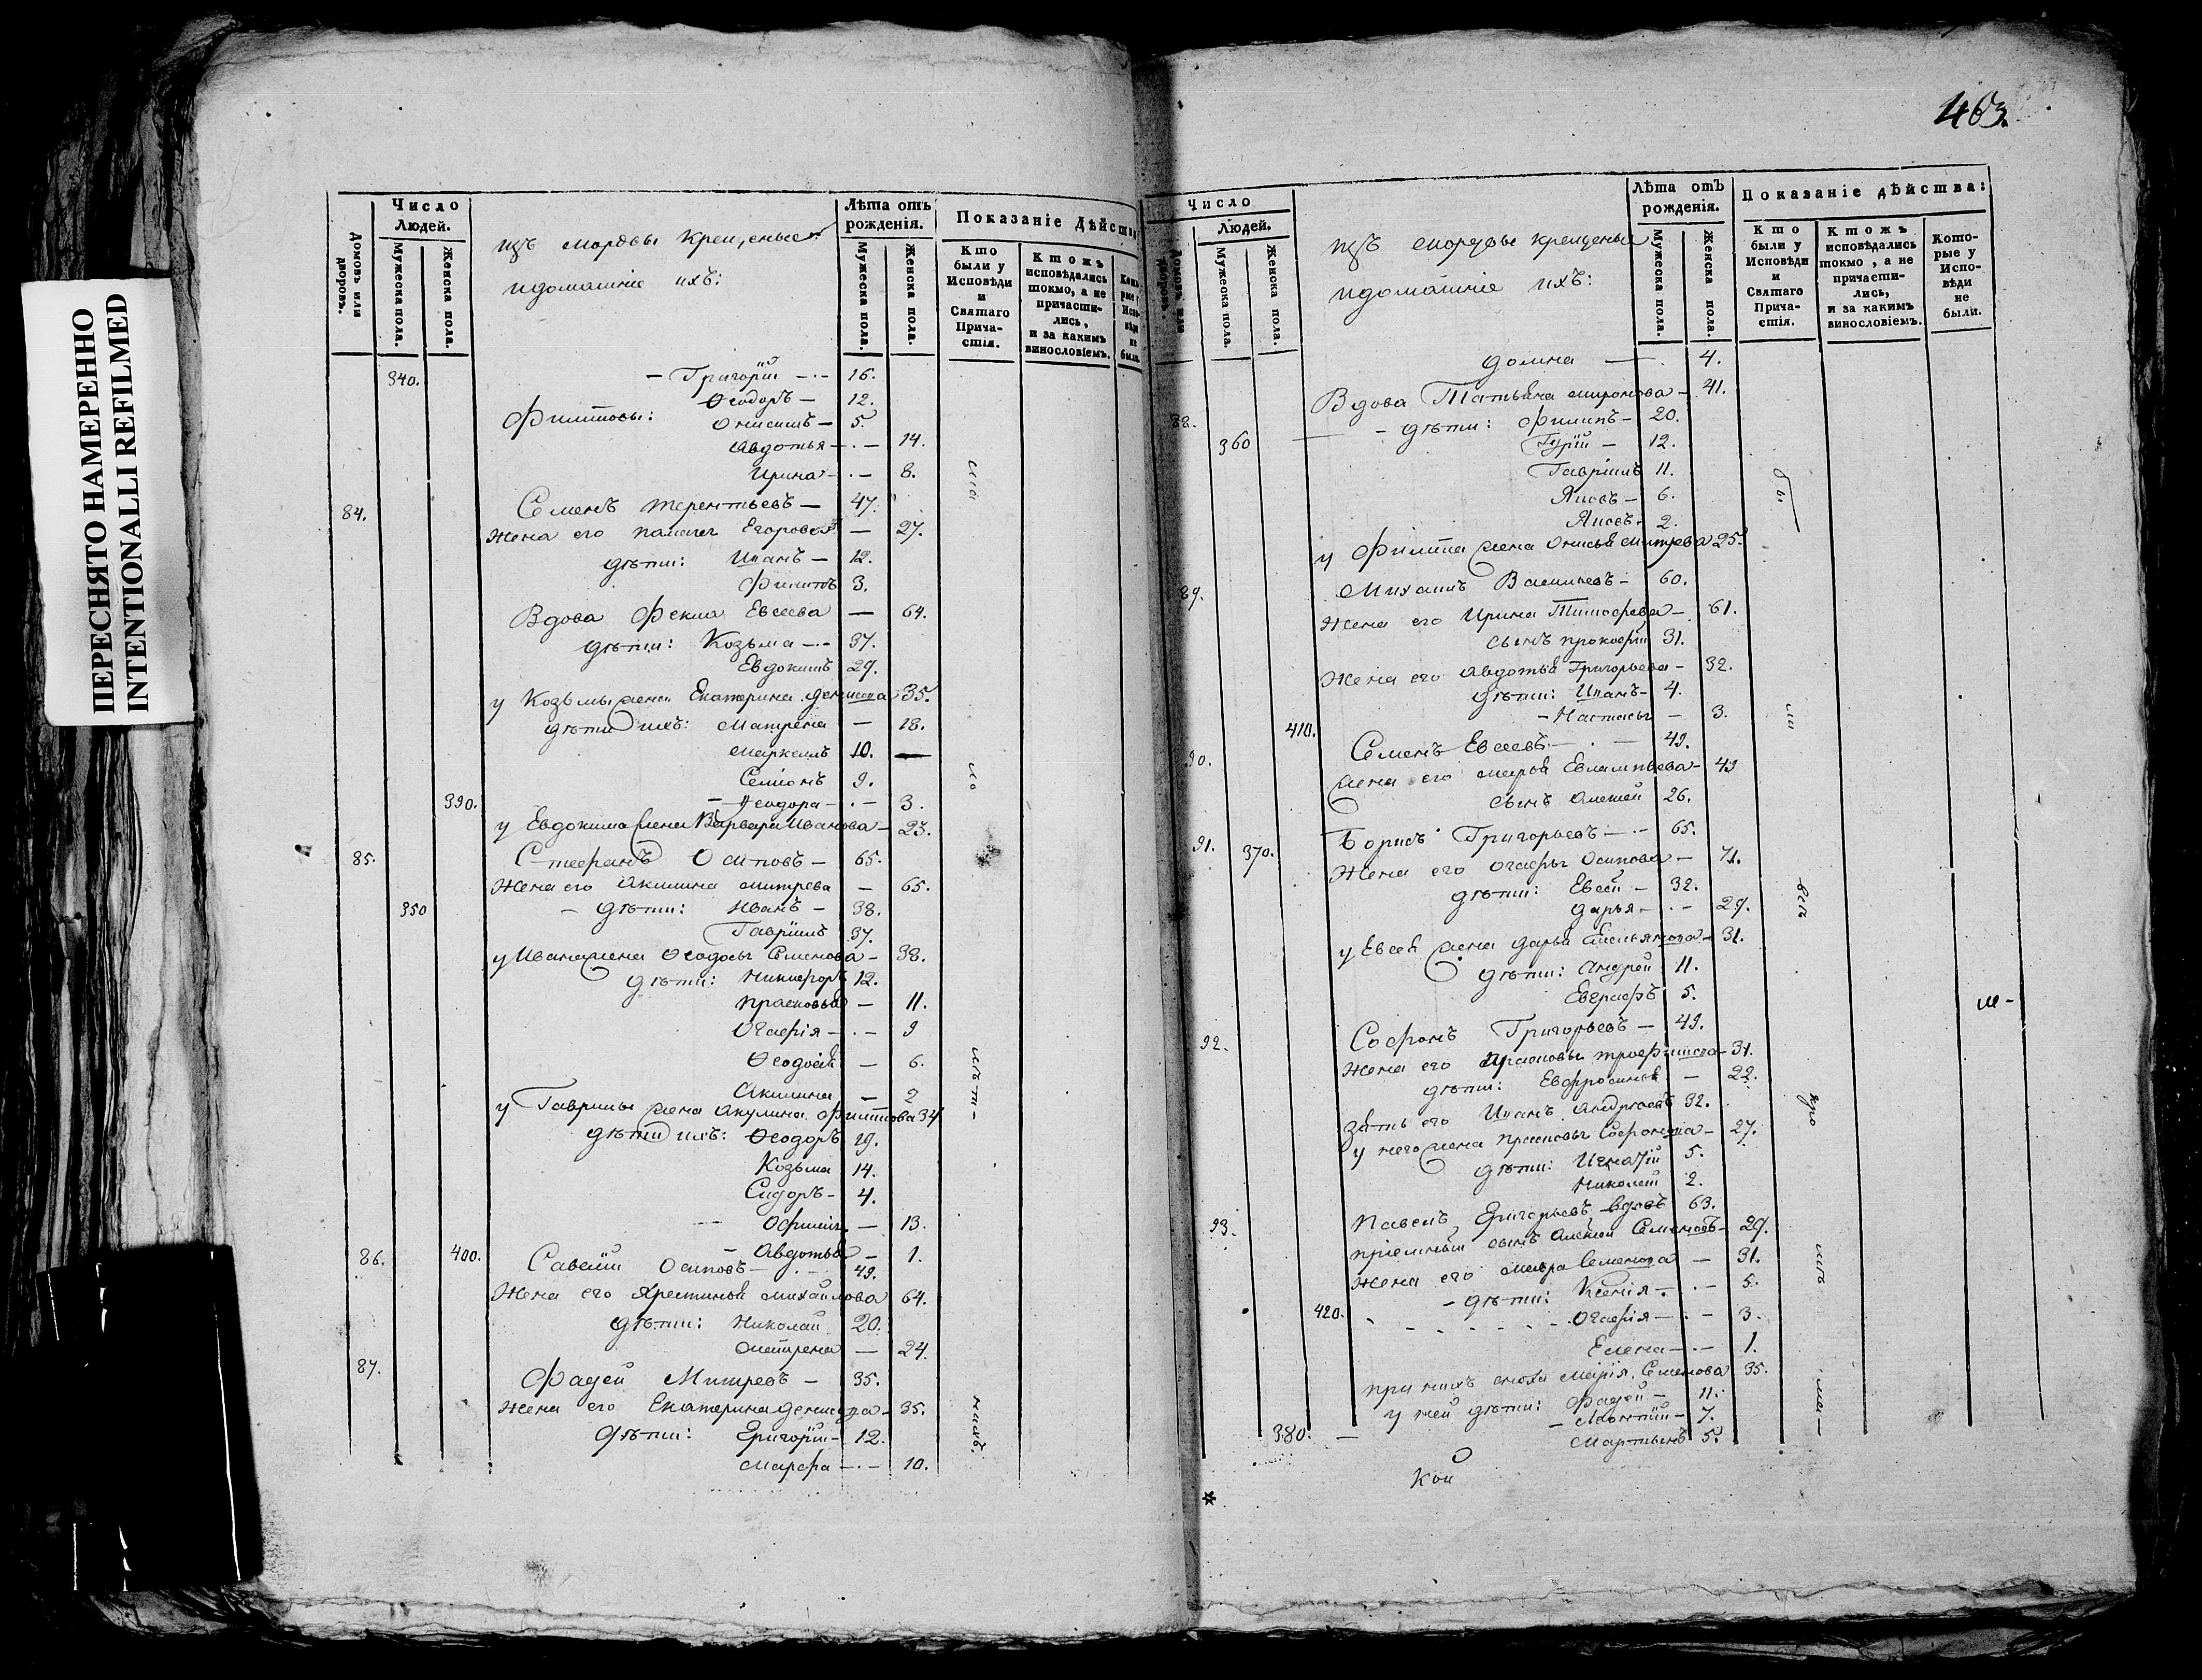 403.
ПЕРЕСНЯТО НАМЕРЕННО
INTENTIONALLI REFILMED
Домовъ или дворовъ.
Число Людей.
Мужеска пола.
Женска пола.
изъ мордвы крещеные
и домашніе ихъ:
Лѣта отъ рожденія.
Мужеска пола.
Женска пола.
Показаніе Дѣйств
Кто были у Исповѣди и Святаго Прича-стія.
Ктожъ исповѣдались токмо, а не причасти-лись, и за какимъ винословіемъ.
Кото рые у Испо вѣди не были.
340. – Григорій – 16.
Ѳеодоръ – 12.
Филиповы: Онисимъ – 5.
Авдотья – 14.
Ирина – 8.
84. Семенъ Терентьевъ – 47.
Жена его Егорова – 27.
дѣти: Иванъ – 12.
Филипъ 3.
Вдова Фекла Евсеева – 64.
дѣти: Козьма – 37.
Евдокимъ 29.
у Козьмы жена Екатерина Денисова 35.
дѣти ихъ: Матрена – 18.
Маркелъ 10. –
Семіонъ 9.
390. – Ѳеодора – 3.
у Евдокима жена Варвара Иванова – 23.
85. Стефанъ Осиповъ – 65.
Жена его Акилина Митрева – 65.
350 – дѣти: Иванъ – 38.
Гавріилъ 37.
у Ивана жена Ѳеодосья Семенова – 38.
дѣти: Никифоръ 12.
Прасковья – 11.
Агафія – 9
Ѳеодосія – 6.
Акилина – 2
у Гаврилы жена Акулина Филипова 34
дѣти ихъ: Ѳеодоръ 19.
Козьма 14.
Сидоръ – 4.
– 13.
400. – Авдотья – 1.
86. Савелій Осиповъ – 49.
Жена его Хрестинья Михайлова 64.
дѣти: Николай 20.
Матрена – 24.
87. Фадей Митревъ – 35.
Жена его Екатерина Денисова – 35.
дѣти: Григорій – 12.
Марфа – 10.
Домовъ или дворовъ.
Число Людей.
Мужеска пола.
Женска пола.
изъ мордвы крещеные
и домашніе ихъ:
Лѣта отъ рожденія.
Мужеска пола.
Женска пола.
Показаніе дѣйства:
Кто были у Исповѣди и Святаго Прича-стія.
Ктожъ исповѣдались токмо, а не причасти-лись, и за какимъ винословіемъ.
Кото-рые у Испо-вѣди не были.
Домна – 4.
88. Вдова Татьяна Миронова – 41.
360 – дѣти: Филипъ – 20.
Гурій – 12.
Гавріилъ 11.
Яковъ – 6.
Яковъ – 2.
у Филипа жена Онисья Митрева 25.
89. Михаилъ Васильевъ – 60.
Жена его Ирина Тимофеева – 61.
сынъ Прокофій 31.
Жена его Авдотья Григорьева – 32.
дѣти: Иванъ – 4.
410. – Настасья – 3.
90. Семенъ Евсеевъ – 49.
жена его Марья Евлампьева – 49
сынъ Алексей 26.
91. 370. Борисъ Григорьевъ – 65.
Жена его Агафья Осипова – 71.
дѣти: Евсей – 32.
Дарья – 29.
у Евсея жена Дарья Емельянова – 31.
дѣти: Андрей 11.
Евграфъ 5.
92. Софронъ Григорьевъ – 49.
Жена его Прасковья Трофимова – 31.
дѣти: Евфросинья – 22.
зять его Иванъ Андреевъ 32.
у него жена Прасковья Софронова – 27.
дѣти: Игнатій 5.
Николай 2.
93. Павелъ Григорьевъ вдовъ 63.
пріемный сынъ Алексей Семеновъ – 29.
Жена его Мавра Семенова – 31.
– дѣти: Ксенія – 5.
420. – Агафія – 3.
Елена – 1.
при нихъ сноха Марія Семенова 35.
у ней дѣти: Фадей – 11.
– Леонтій – 7.
380. – Мартынъ 5.
бы